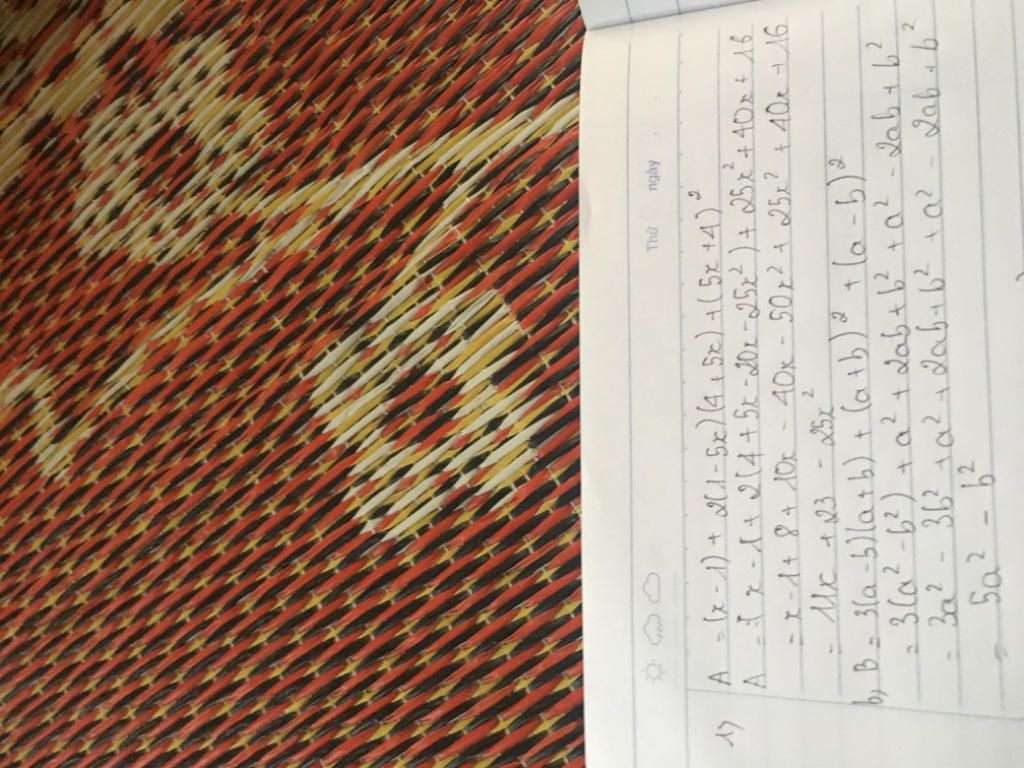 Thứ ngày
1) A = (x - 1) + 2(1 - 5x)(4 + 5x) + (5x + 4)²
A = (x - 1 + 2(4 + 5x - 20x - 25x²) + 25x² + 40x + 16
= x - 1 + 8 + 10x - 40x - 50x² + 25x² + 40x + 16
= 11x + 23 - 25x²
b, B = 3(a - b)(a + b) + (a + b)² + (a - b)²
= 3(a² - b²) + a² + 2ab + b² + a² - 2ab + b²
= 3a² - 3b² + a² + 2ab + b² + a² - 2ab + b²
= 5a² - b²